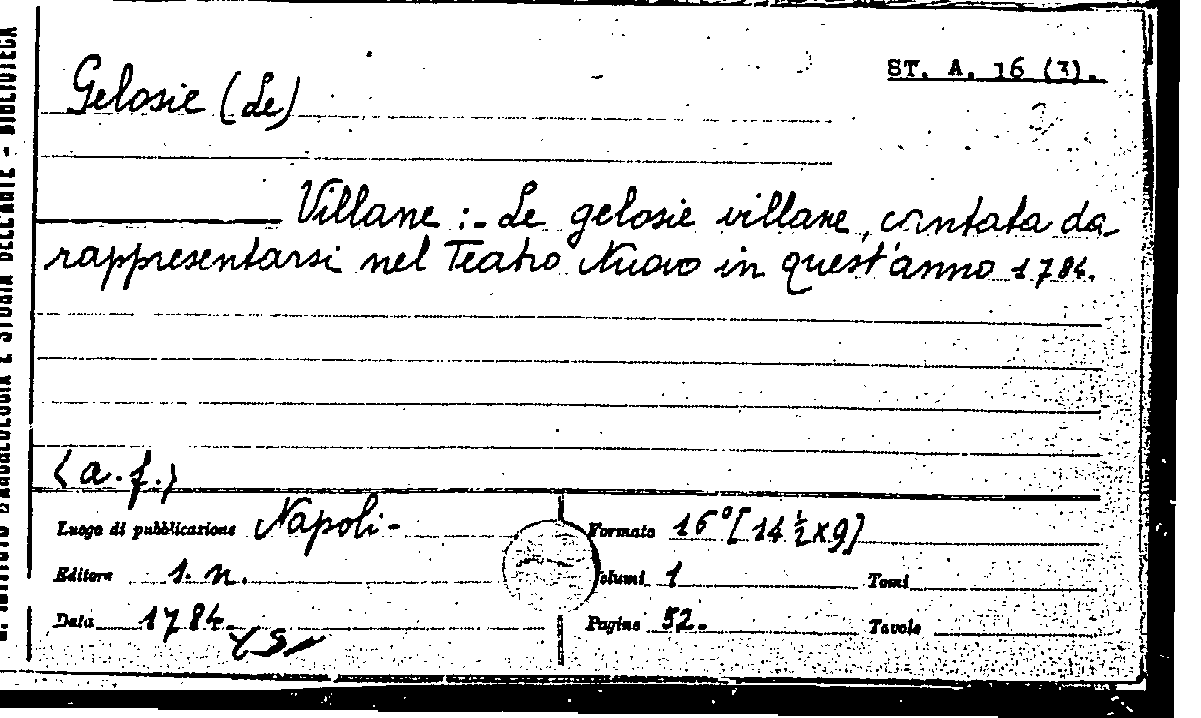 ST. A. 16 (3).
Gelosie (Le)
Villane :- Le gelosie villane, cantata da
rappresentarsi nel Teatro Nuovo in quest'anno 1784.
(a. f.)
Luogo di pubblicazione Napoli-
Formato 16° [14 ½ x 9]
Editore s. n.
Volumi 1
Tomi
Data 1784.
Pagine 52.
Tavole
R. ISTITUTO D'ARCHEOLOGIA E STORIA DELL'ARTE - BIBLIOTECA